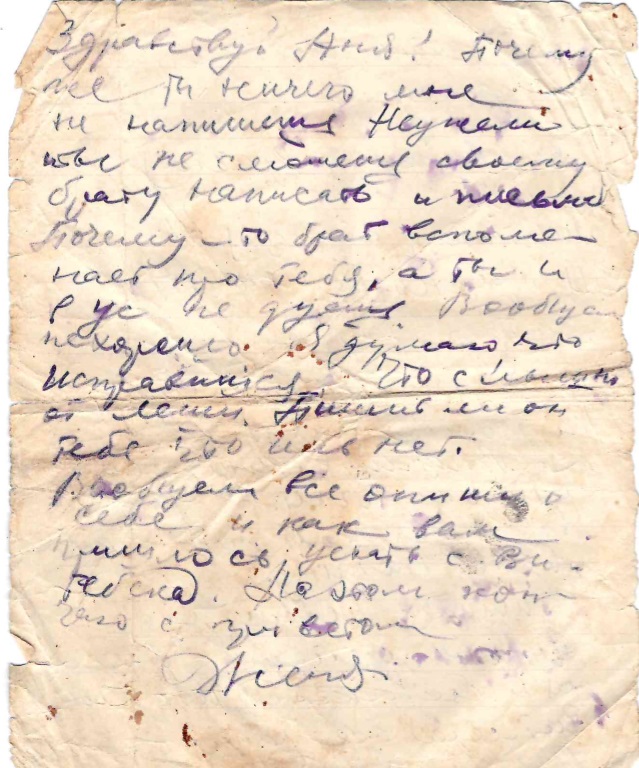 Здравствуй Аня! Почему
же ты ничего мне
не напишешь Неужели
ты не сможешь своему
брату написать и письмо
Почему-то брат вспоме-
нает про тебя, а ты и
в ус не дуешь Вообщем
нехорошо Я думаю что
исправишся. Что слышно
от Лени. Пишит ли он
тебе что иль нет.
Вообщем все опиши о
себе и как вам
пришлось уехать с Ви-
тебска). На этом кон-
чаю с приветом
Женя